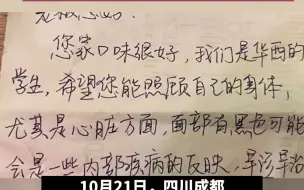 您家口味很好，我们是华西的
学生，希望您能照顾自己的身体，
尤其是心脏方面，面部有黑也可能
会是一些内部疾病的反映，早诊早治
10月21日，四川成都